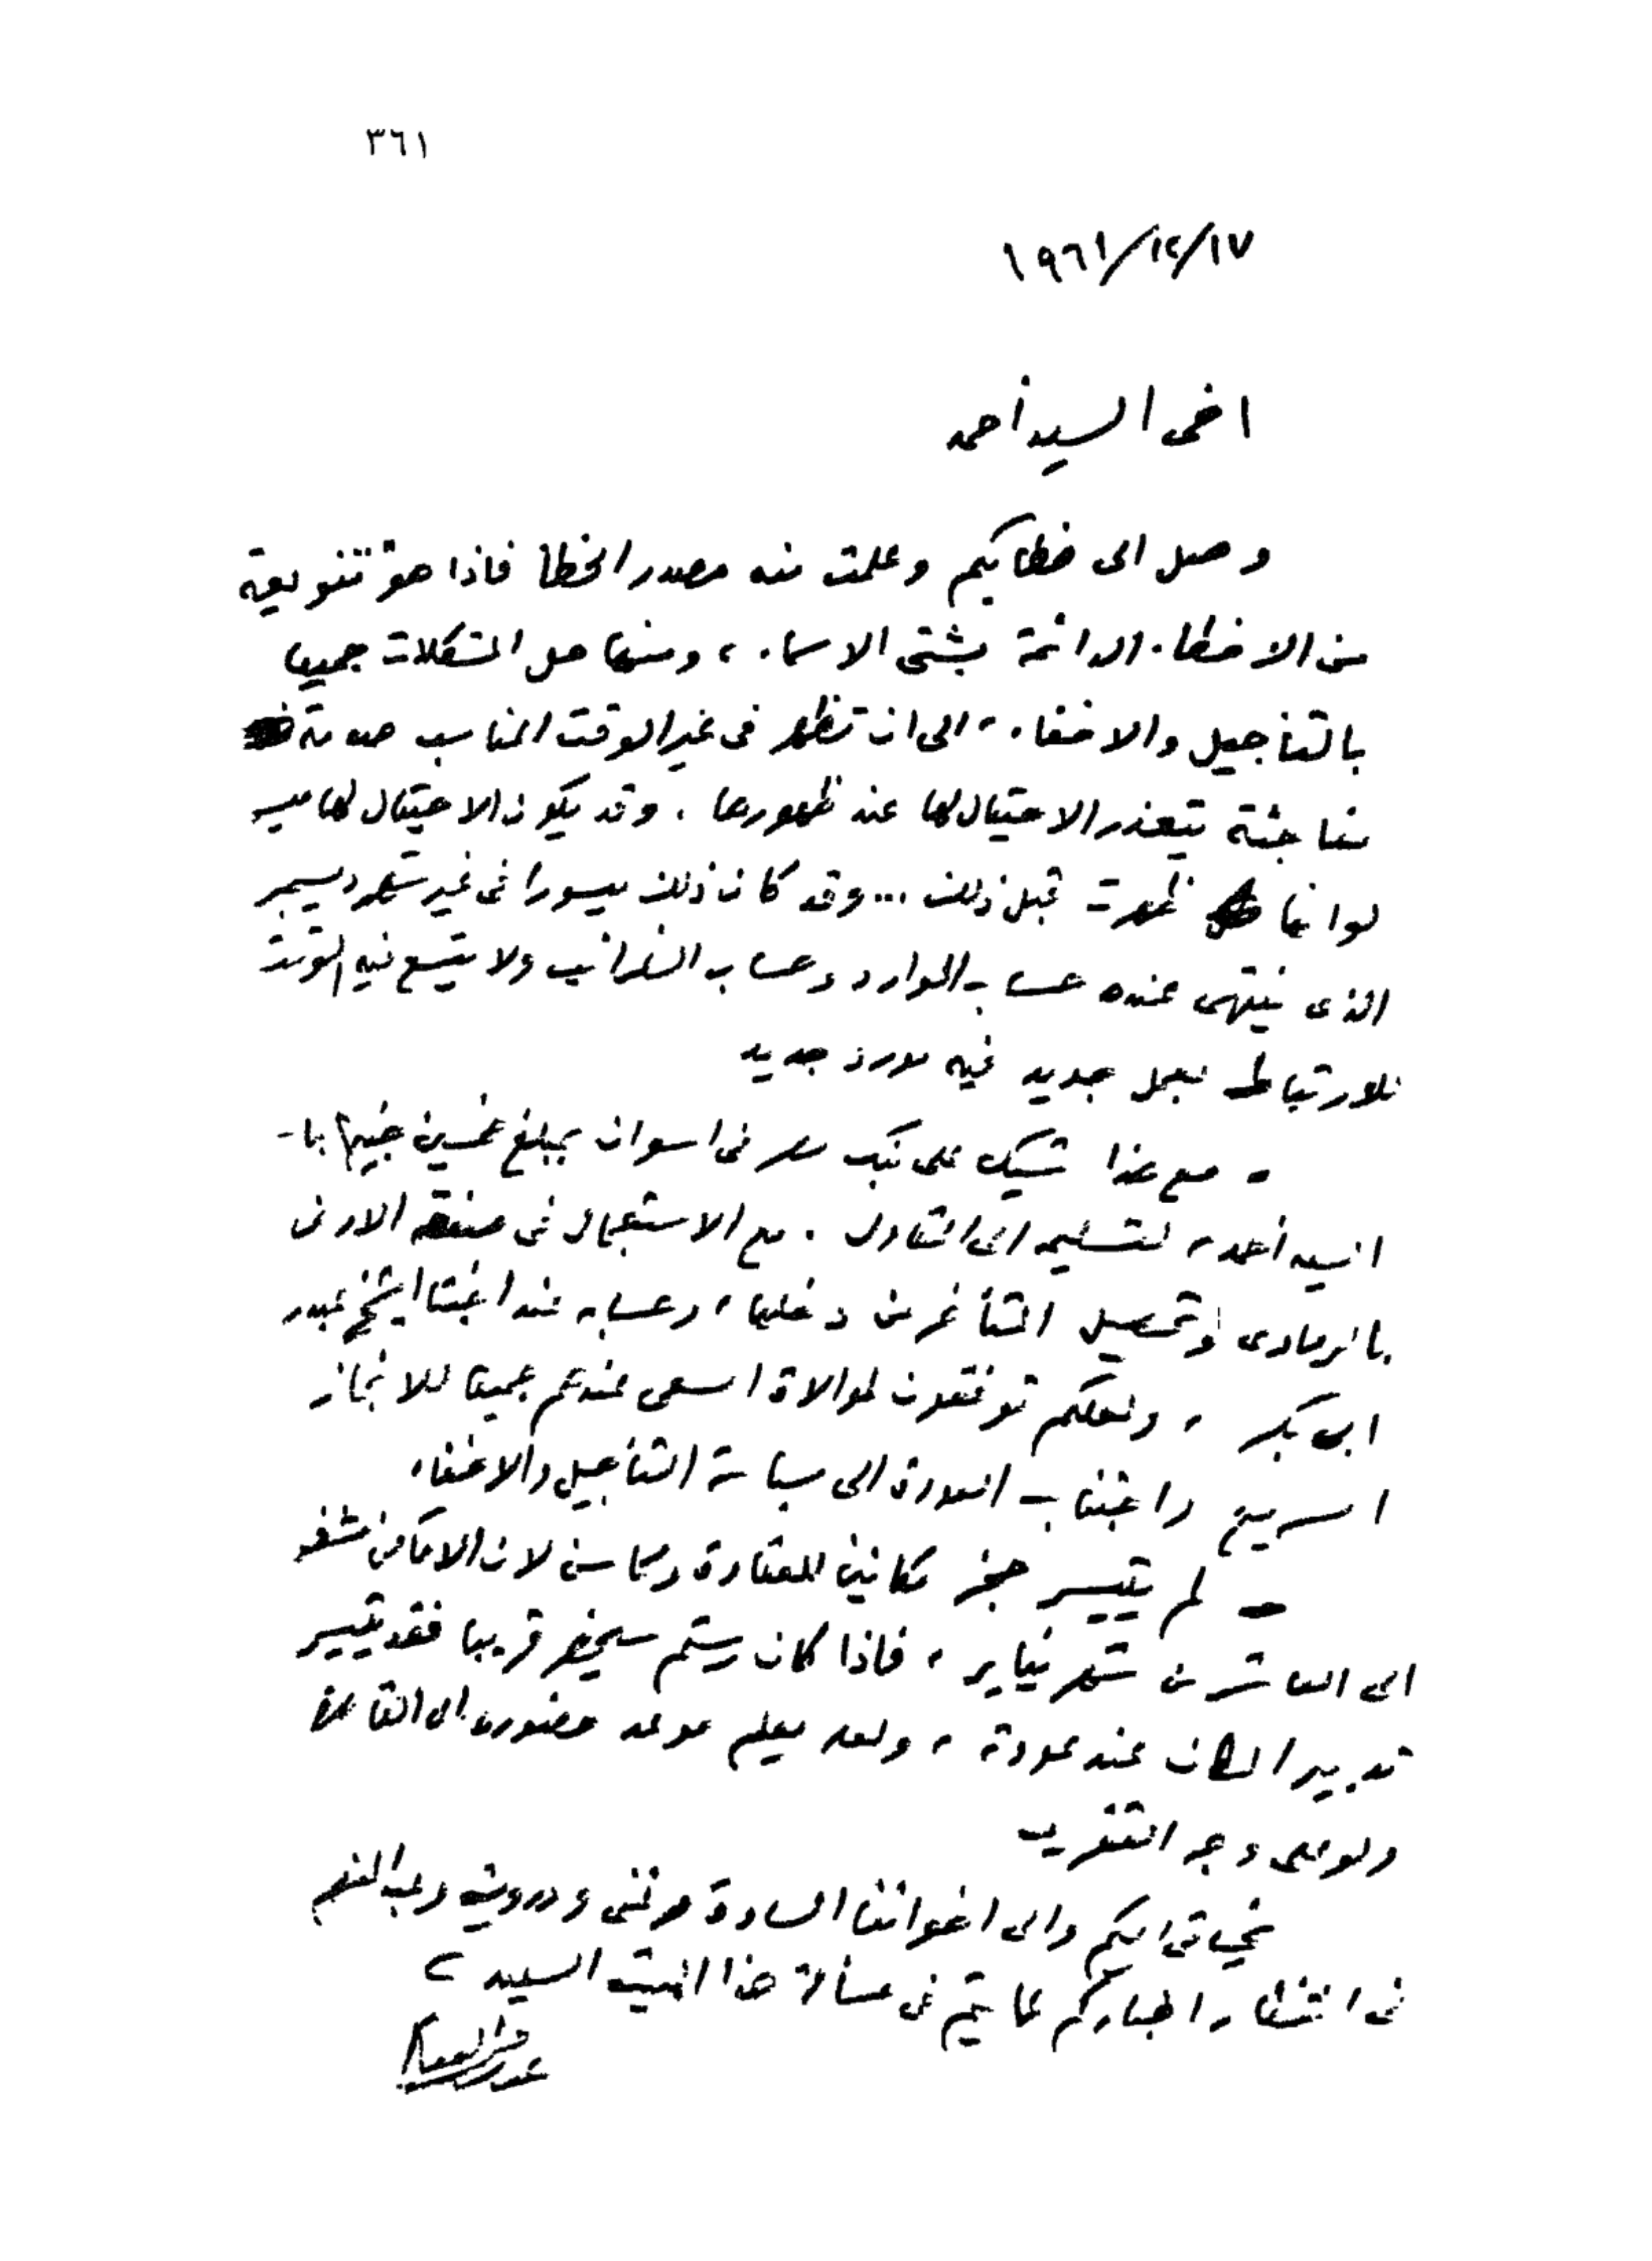 ٣٦١
١٩٦١/١٢/١٧
اخى السيد أحمد
وصل الى خطابكم وعلمت منه مصدر الخطأ فاذا هو تنويعة
من الاخطاء الدائمة بشتى الاسماء ، ومنها حل المشكلات جميعا
بالتأجيل والاخفاء ، الى ان تظهر فى غير الوقت المناسب صدمة
مفاجئة يتعذر الاحتيال لها عند ظهورها . وقد يكون الاحتيال لها
لو انها ظهرت قبل ذلك ... وقد كان ذلك ميسورا فى غير شهر ديسمبر
الذى ينتهى عنده حساب الموارد وحساب الضرائب ولا يتسع فيه الوقت
للارتباط بعمل جديد فيه مورد جديد
- مع هذا شيك على بنك مصر فى اسوان بمبلغ خمسين جنيها با-
السيد أحمد ، لتسليمه الى المقاول . مع الاستعجال فى الارض
بالرمادى وتحصيل المتأخر من دخلها ، وحسابه عند الشيخ
ابى بكر ، ولعلكم توفقون لموالاة السعى عندهم جميعا للانجاز
السريع واجتناب العودة الى سياسة التأجيل والاخفاء
- لم يتيسر حجز مكانين للعقاد لان الاماكن
الى العاشر من شهر يناير ، فاذا كان سيحضر قريبا فقد يتيسر
تدبير المكان عند عودته ، ولعله يعلم موعد حضوره الى القاهرة
ولو على وجه التقريب
تحياتى اليكم والى اخواننا السادة مرغنى ودرويش وعبد المنعم
فى انتظار اخباركم عما يتم فى مسألة هذا البيت السعيد
عباس محمود العقاد